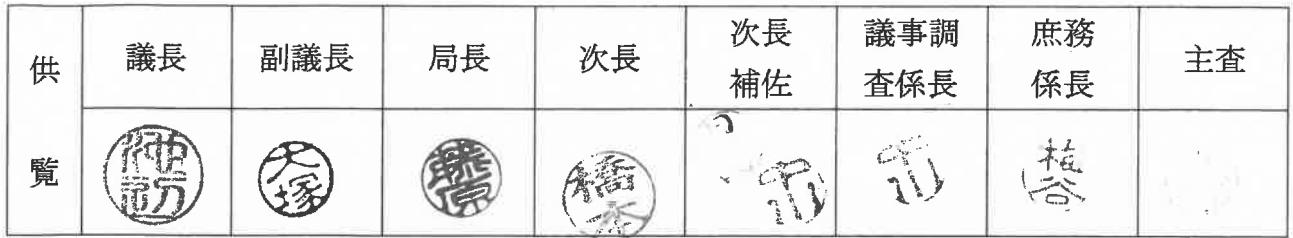 供覧
議長
副議長
局長
次長
次長
補佐
議事調
査係長
庶務
係長
主査
大塚
藤原
梅谷